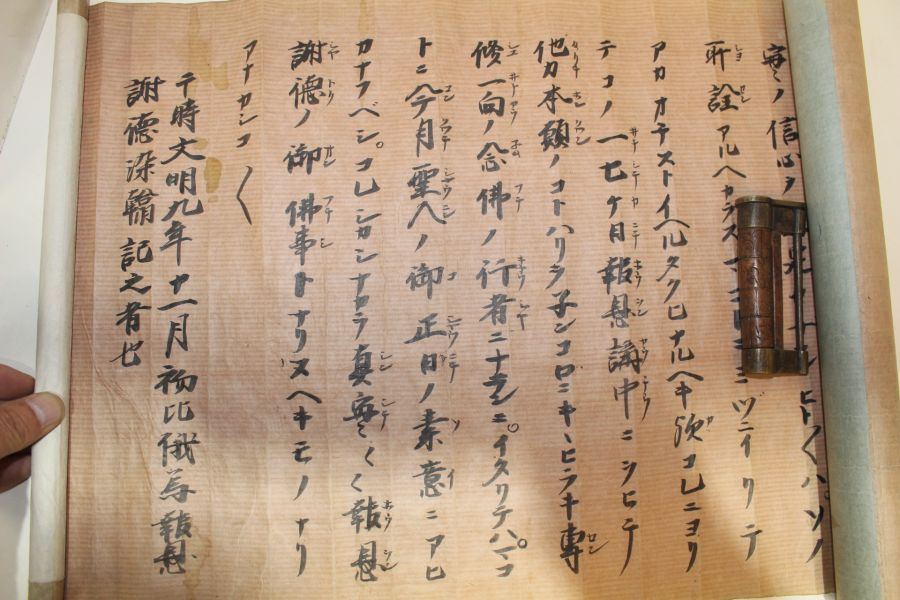 實ノ信心ヲ ヒト〱ハ。ソノ
所詮アルヘカラスマコトニミヅニイリテ
アカオチストイヘルタクヒナルヘキ歟コレニヨリ
テコノ一七ケ日報恩講中ニヲヒテ
他力本願ノコトハリヲ子ンコロニキヽヒラキ専
修一向ノ念佛ノ行者ニナランニ。イタリテハ。マコ
トニ今月聖人ノ御正日ノ素意ニアヒ
カナフベシ。コレシカシナカラ真實〱報恩
謝徳ノ御佛事トナリヌヘキモノナリ
アナカシコ〱
于時文明九年十一月初比俄為報恩
謝徳染翰記之者也